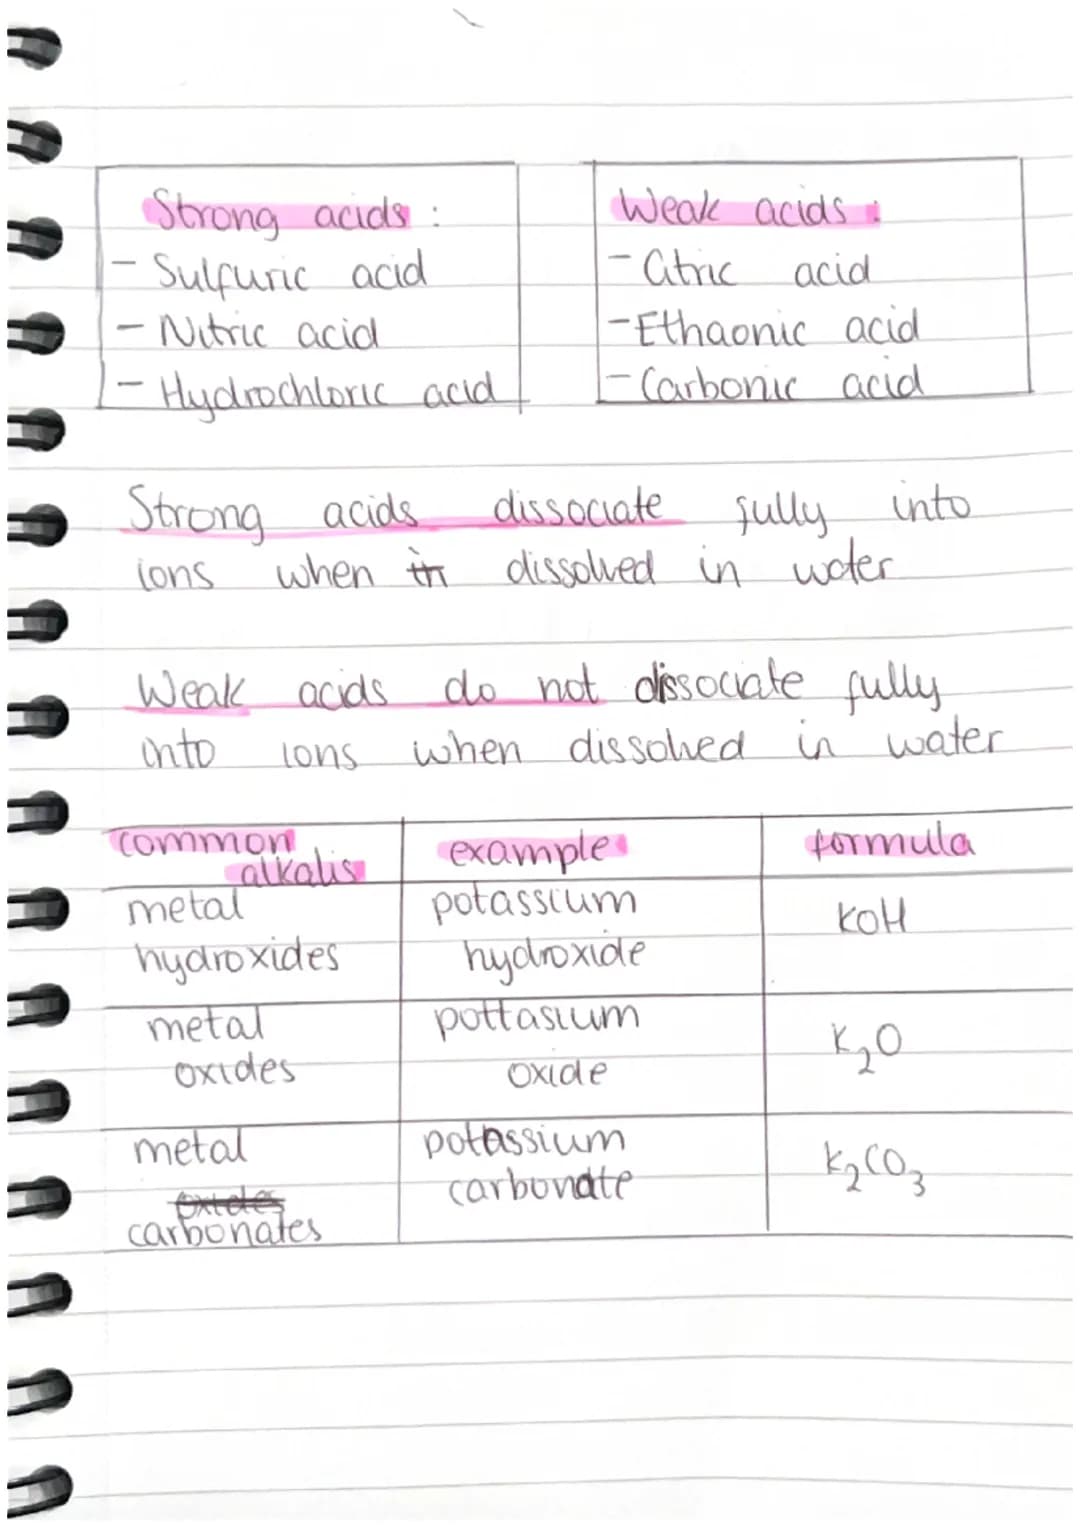 Strong acids :
- Sulfuric acid
- Nitric acid
- Hydrochloric acid
Weak acids :
- Citric acid
- Ethaonic acid
- Carbonic acid
Strong acids dissociate fully into
ions when in dissolved in water
Weak acids do not dissociate fully
into ions when dissolved in water
common alkalis
example
formula
metal hydroxides
potassium hydroxide
KOH
metal oxides
pottasium oxide
K₂O
metal oxides carbonates
potassium carbonate
K₂CO₃